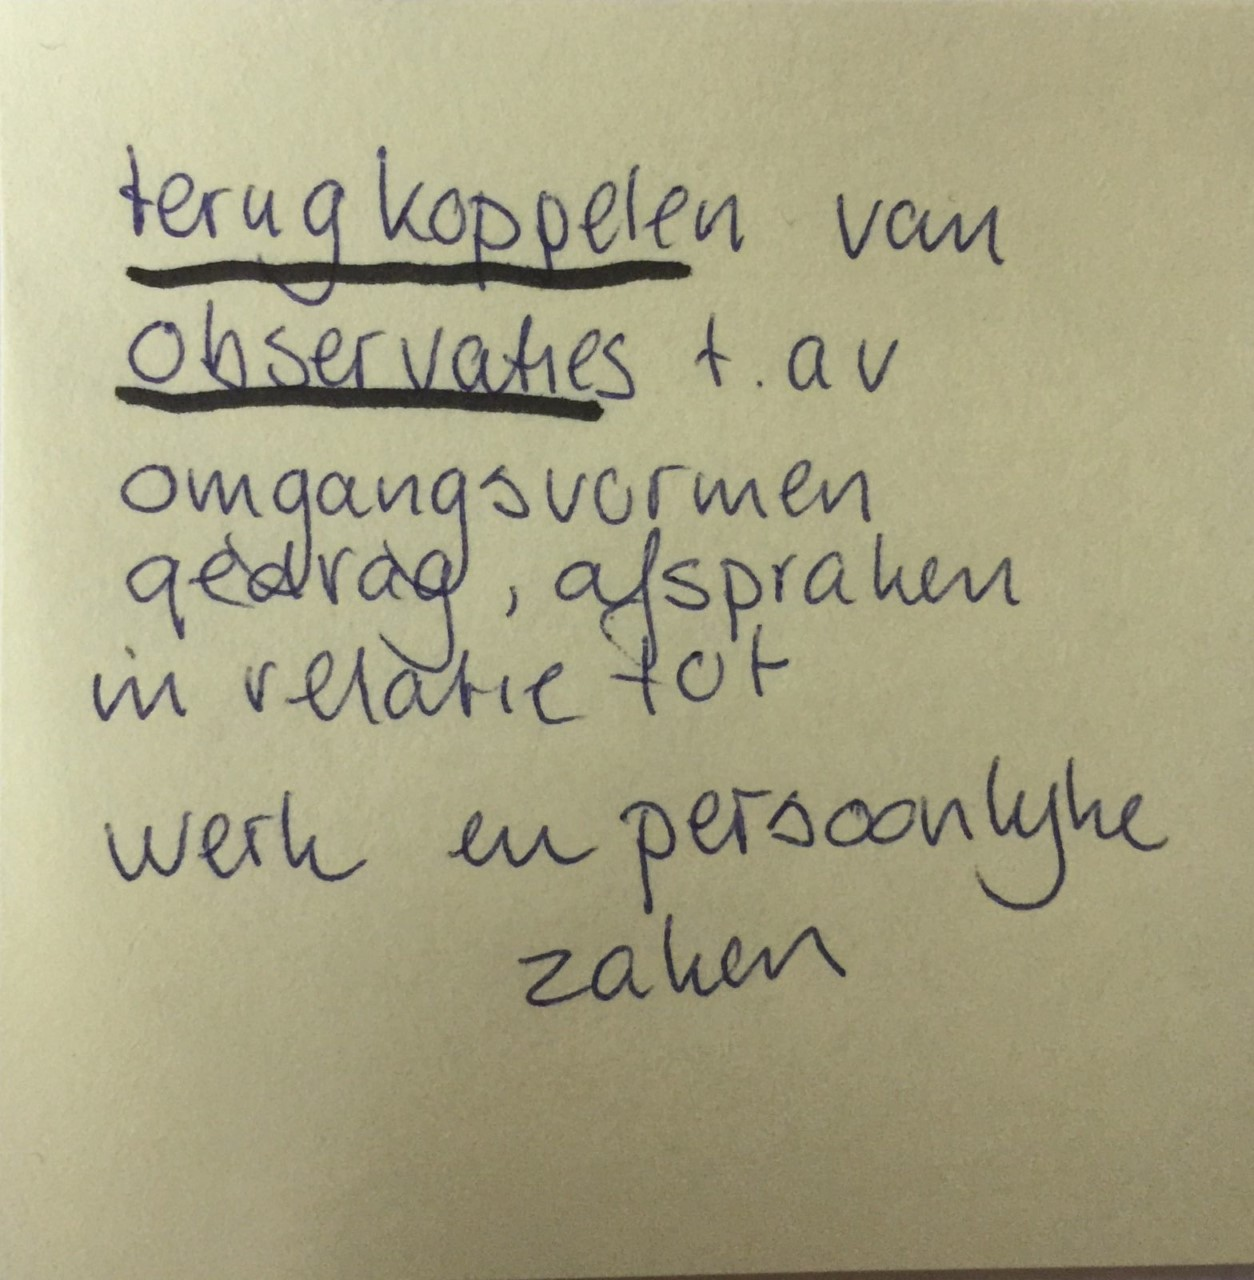 terugkoppelen van
observaties t.av
omgangsvormen
gedrag, afspraken
in relatie tot
werk en persoonlijke
zaken